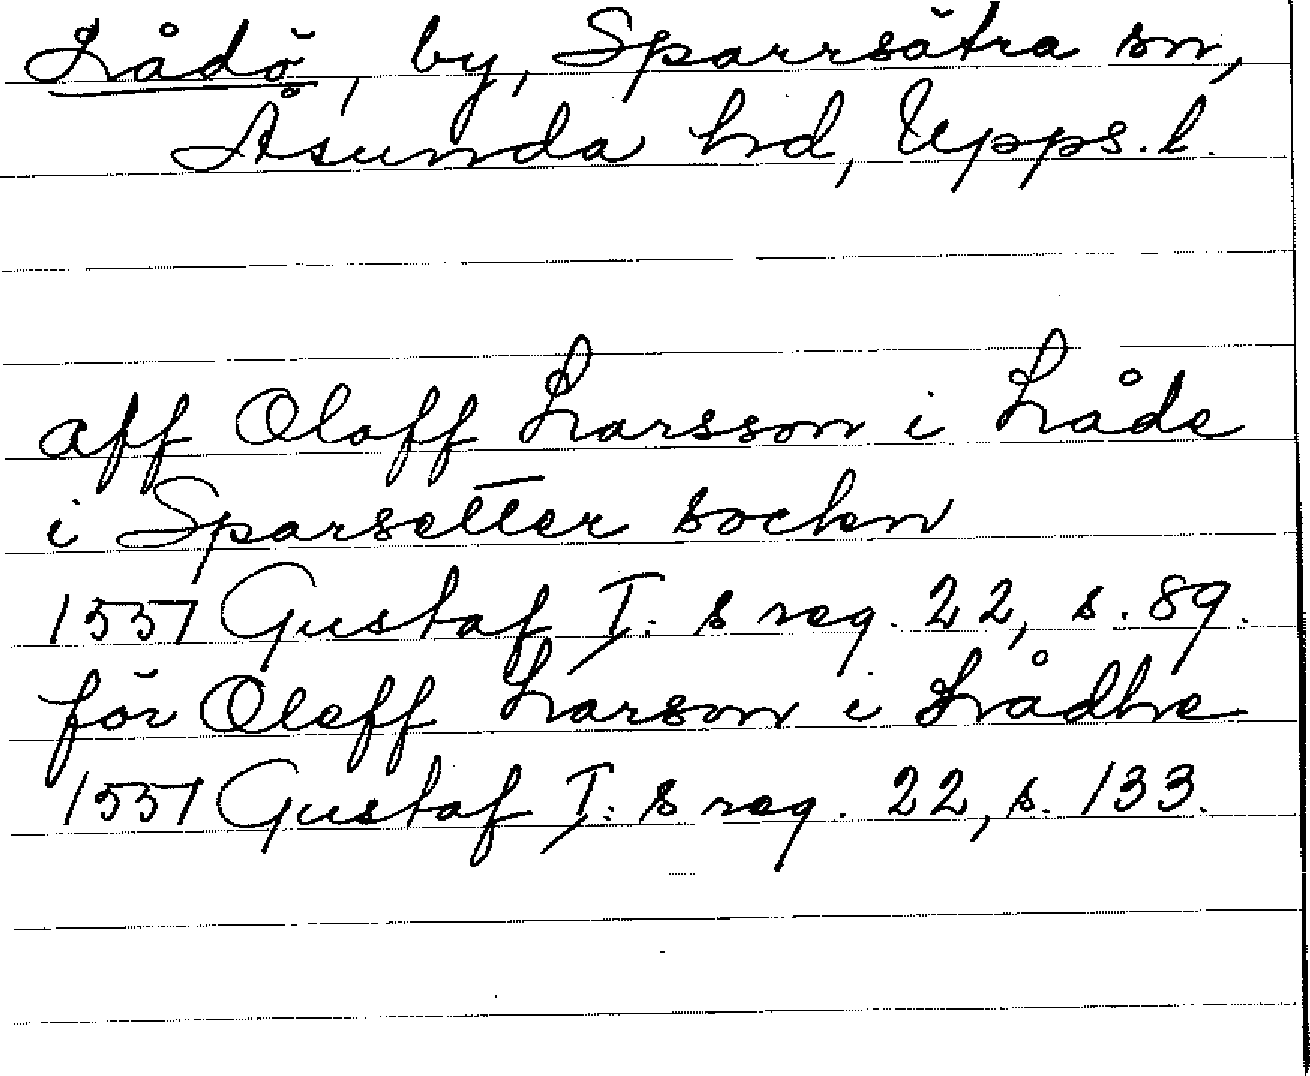 Lådö, by, Sparrsätra sn,
Åsunda hd, Upps. l.
aff Oloff Larsson i Låde
i Sparsetter socken
1551 Gustaf I: s reg. 22, s. 89.
för Oleff Larson i Lådhe
1551 Gustaf I: s reg. 22, s. 133.